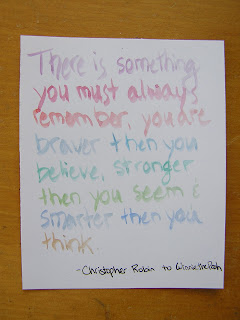 There is something
you must always
remember, you are
braver then you
believe, stronger
then you seem &
smarter then you
think.
-Christopher Robin to Winnie the Pooh